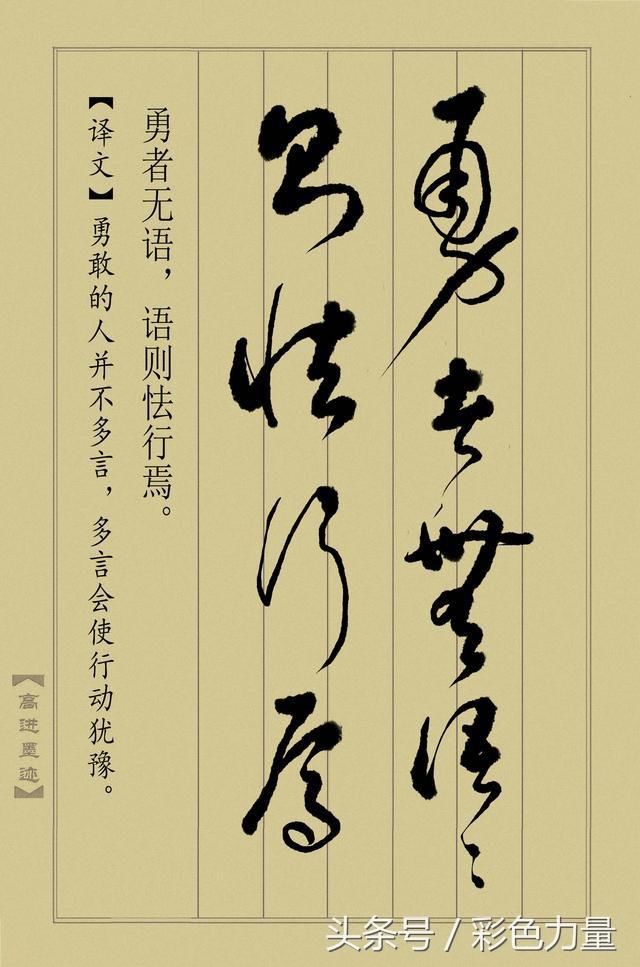 勇者無語〻
则怯行焉
勇者无语，语则怯行焉。
【译文】勇敢的人并不多言，多言会使行动犹豫。
【高进墨迹】
头条号 / 彩色力量